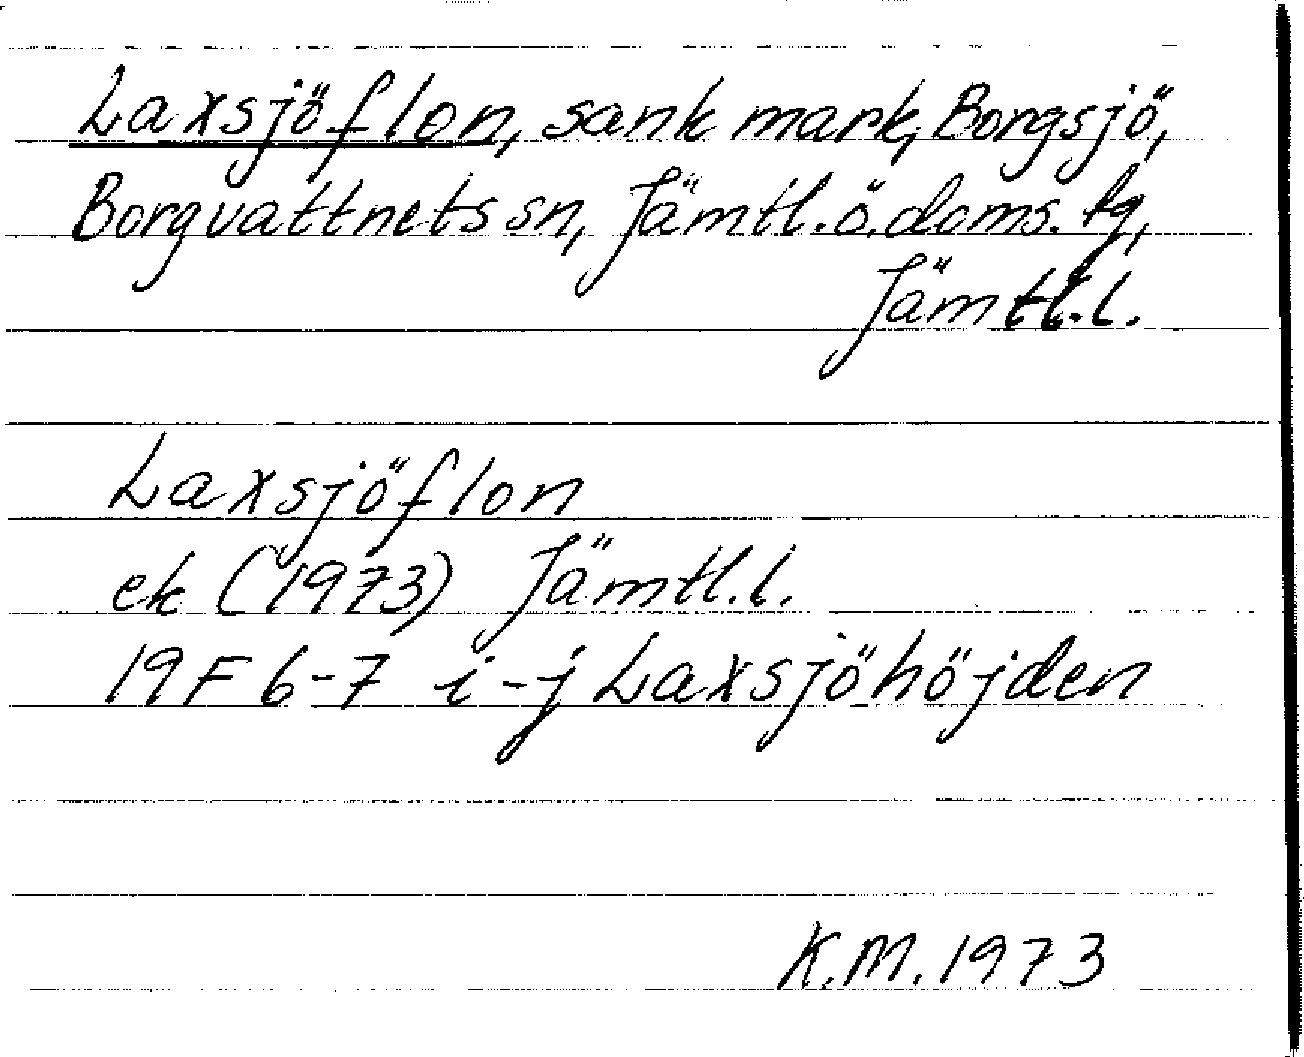 Laxsjöflon, sank mark, Borgsjö,
Borgvattnets sn, Jämtl. ö. doms. tg,
Jämtl. l.
Laxsjöflon
ek (1973) Jämtl. l.
19F 6-7 i-j Laxsjöhöjden
K.M. 1973